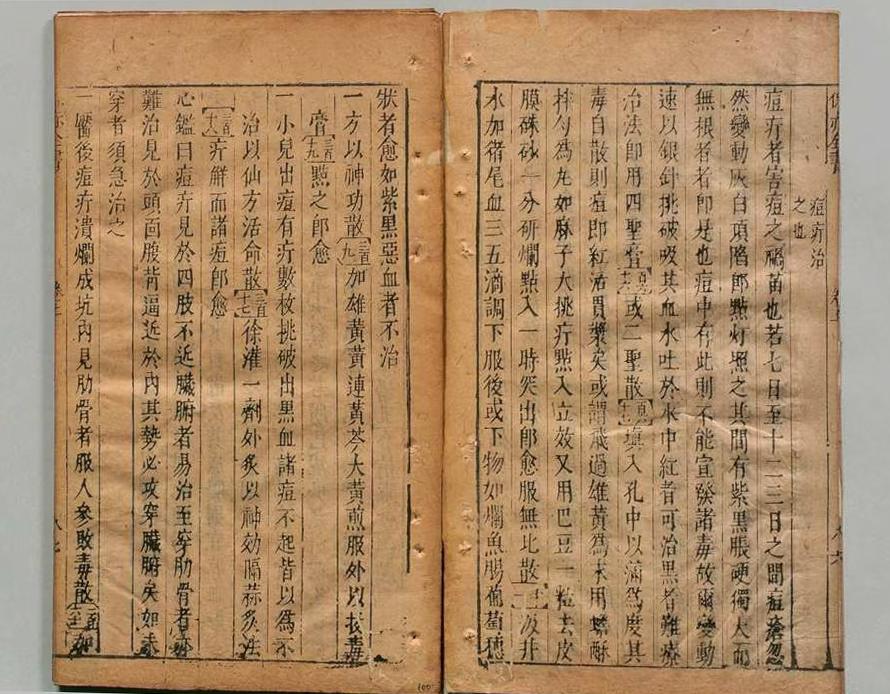 痘疔治
之也
痘疔者害痘之禍苗也若七日至十二三日之間痘瘡忽
然變動灰白頂陷即點灯照之其間有紫黑脹硬獨大而
無根者者即是也痘中有此則不能宣發諸毒故爾變動
速以銀針挑破吸其血水吐於水中紅者可治黑者難療
治法即用四聖膏或二聖散填入孔中以滿為度其
毒自散則痘即紅活貫漿矣或謂飛過雄黃為末用蟾酥
拌勻為丸如麻子大挑疔點入立效又用巴豆一粒去皮
膜硃砂一分研爛點入一時突出即愈服無比散汲井
水加猪尾血三五滴調下服後或下物如爛魚腸葡萄穗
狀者愈如紫黑惡血者不治
一方以神功散加雄黃黃連黃芩大黃煎服外以拔毒
膏點之即愈
一小兒出痘有疔數枚挑破出黑血諸痘不起皆以為不
治以仙方活命散徐灌一劑外炙以神効隔蒜炙法
疔解而諸痘即愈
心鑑曰痘疔見於四肢不近臟腑者易治至穿肋骨者
難治見於頭面腹背逼近於內其勢必攻穿臟腑矣如未
穿者須急治之
一醫後痘疔潰爛成坑內見肋骨者服人參敗毒散加